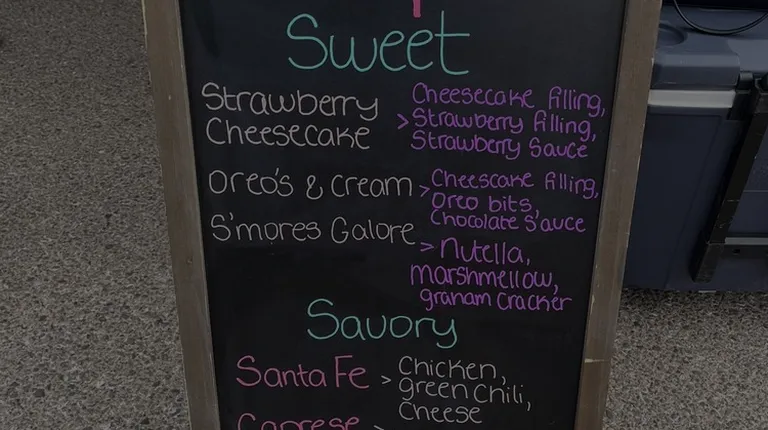 Sweet
Strawberry Cheesecake > Cheesecake filling,
Strawberry filling,
Strawberry Sauce
Oreo's & Cream > Cheescake filling,
Oreo bits,
Chocolate Sauce
S'mores Galore > Nutella,
marshmellow,
graham cracker
Savory
Santa Fe > Chicken,
green Chili,
Cheese
Caprese >